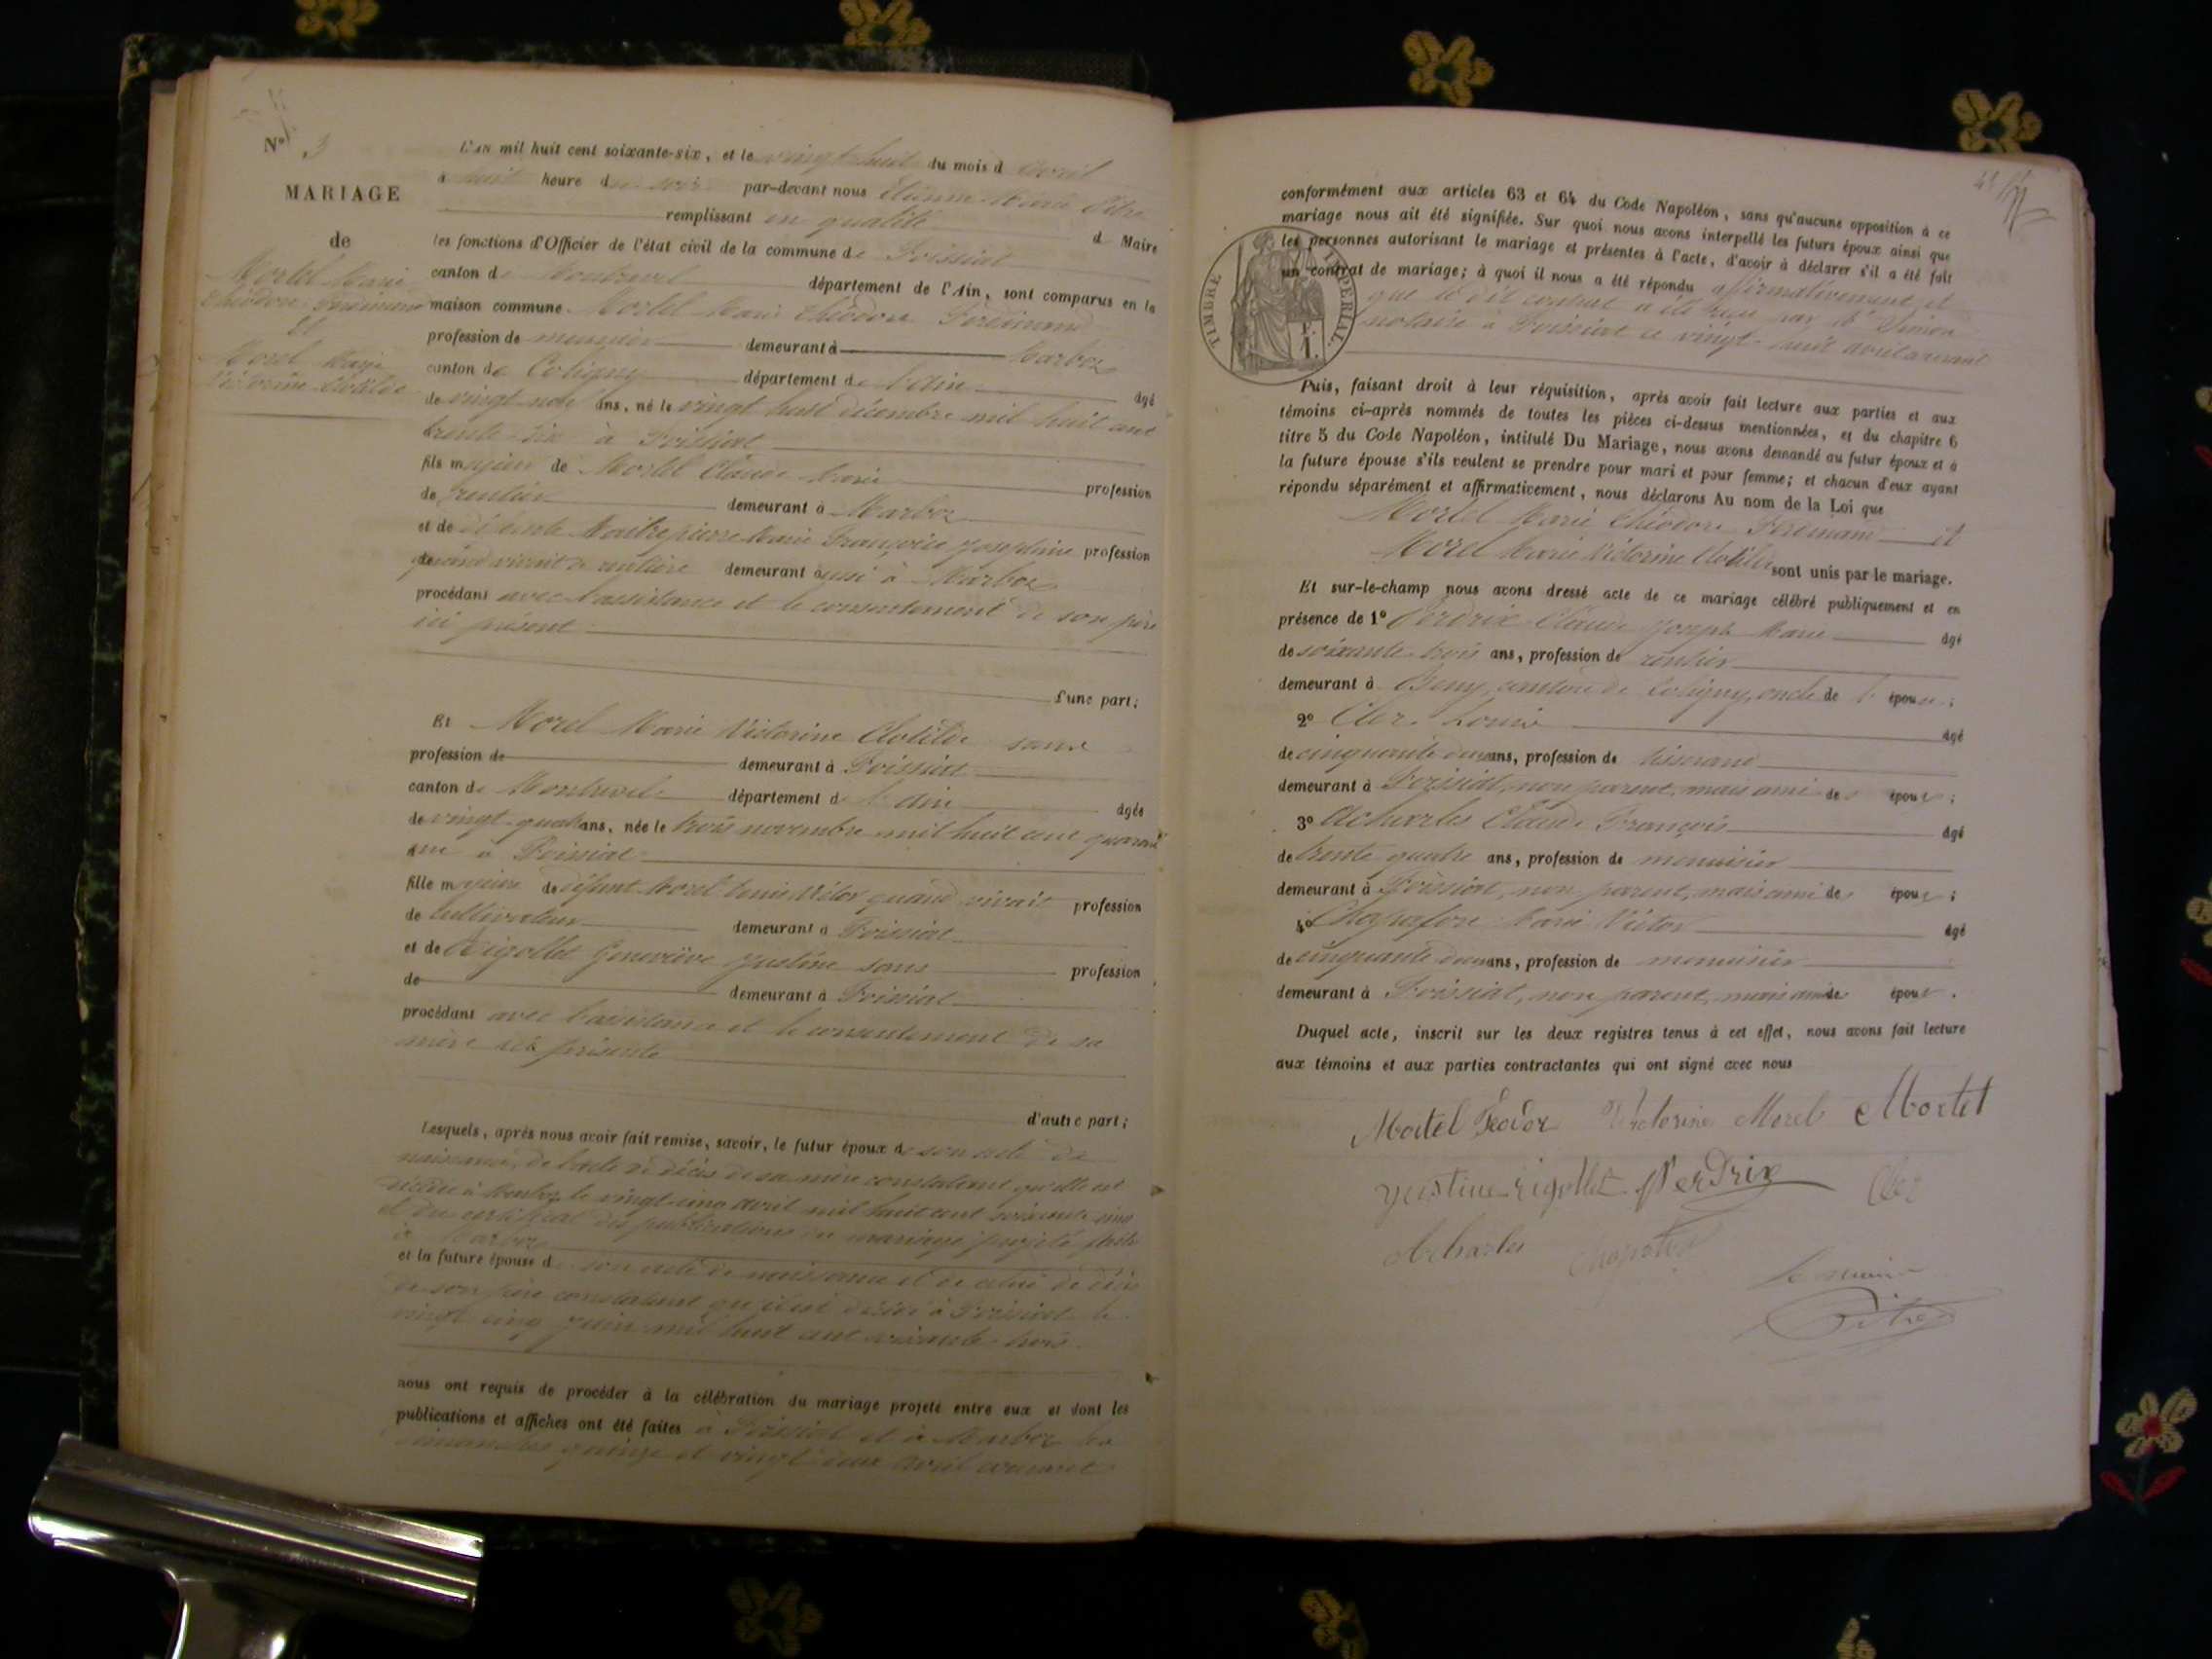 No 3
MARIAGE
de
Mortel Marie
Théodore Ferdinand
Et
Morel Marie
Victorine Clotilde
L'AN mil huit cent soixante-six, et le vingt huit du mois d avril
à huit heure du soir par-devant nous Etienne Marie Pitre
remplissant en qualité d Maire
les fonctions d'Officier de l'état civil de la commune de Foissiat
canton de Montrevel département de l'Ain, sont comparus en la
maison commune Mortel Marie Théodore Ferdinand
profession de meunier demeurant à Marboz
canton de Coligny département de l'ain âgé
de vingt neuf ans, né le vingt huit décembre mil huit cent
trente six à Foissiat
fils majeur de Mortel Claude Marie profession
de rentier demeurant à Marboz
et de défunte Maitrepierre Marie Françoise Josephine profession
de quand vivait de rentière demeurant aussi à Marboz
procédant avec l'assistance et le consentement de son père
ici présent
d'une part;
Et Morel Marie Victorine Clotilde sans
profession de demeurant à Foissiat
canton de Montrevel département de l'ain âgée
de vingt-quatre ans, née le trois novembre mil huit cent quarante
une à Foissiat
fille majeure de défunt Morel Denis Victor quand vivait profession
de cultivateur demeurant à Foissiat
et de Rigollet Geneviève Justine sans profession
de demeurant à Foissiat
procédant avec l'assistance et le consentement de sa
mère ici présente
d'autre part;
Lesquels, après nous avoir fait remise, savoir, le futur époux de son acte de
naissance, de l'acte de décès de sa mère constatant qu'elle est
décédée à Marboz le vingt-cinq avril mil huit cent soixante cinq
et du certificat des publications du mariage projeté faites
à Marboz
et la future épouse de son acte de naissance et de celui de décès
de son père constatant qu'il est décédé à Foissiat le
vingt cinq juin mil huit cent soixante trois.
nous ont requis de procéder à la célébration du mariage projeté entre eux et dont les
publications et affiches ont été faites à Foissiat et à Marboz les
dimanches quinze et vingt deux avril courant
conformément aux articles 63 et 64 du Code Napoléon, sans qu'aucune opposition à ce
mariage nous ait été signifiée. Sur quoi nous avons interpellé les futurs époux ainsi que
les personnes autorisant le mariage et présentes à l'acte, d'avoir à déclarer s'il a été fait
un contrat de mariage; à quoi il nous a été répondu affirmativement et
que le dit contrat a été reçu par Me Simon
notaire à Foissiat ce vingt-huit avril courant
TIMBRE IMPERIAL.
Puis, faisant droit à leur réquisition, après avoir fait lecture aux parties et aux
témoins ci-après nommés de toutes les pièces ci-dessus mentionnées, et du chapitre 6
titre 5 du Code Napoléon, intitulé Du Mariage, nous avons demandé au futur époux et à
la future épouse s'ils veulent se prendre pour mari et pour femme; et chacun d'eux ayant
répondu séparément et affirmativement, nous déclarons Au nom de la Loi que
Mortel Marie Théodore Ferdinand et
Morel Marie Victorine Clotilde sont unis par le mariage.
Et sur-le-champ nous avons dressé acte de ce mariage célébré publiquement et en
présence de 1° Perdrix Claude Joseph Marie âgé
de soixante-trois ans, profession de rentier
demeurant à Beny, canton de Coligny, oncle de l'épouse;
2° Cler Louis âgé
de cinquante deux ans, profession de
demeurant à Foissiat, non parent, mais ami des époux;
3° Acharles Claude François âgé
de trente quatre ans, profession de menuisier
demeurant à Foissiat, non parent, mais ami des époux;
4° Marie Victor âgé
de cinquante deux ans, profession de menuisier
demeurant à Foissiat, non parent, mais ami des époux.
Duquel acte, inscrit sur les deux registres tenus à cet effet, nous avons fait lecture
aux témoins et aux parties contractantes qui ont signé avec nous
Mortel Teodor Victorine Morel Mortel
Justine rigollet Perdrix Cler
Acharles
le maire
Pitre